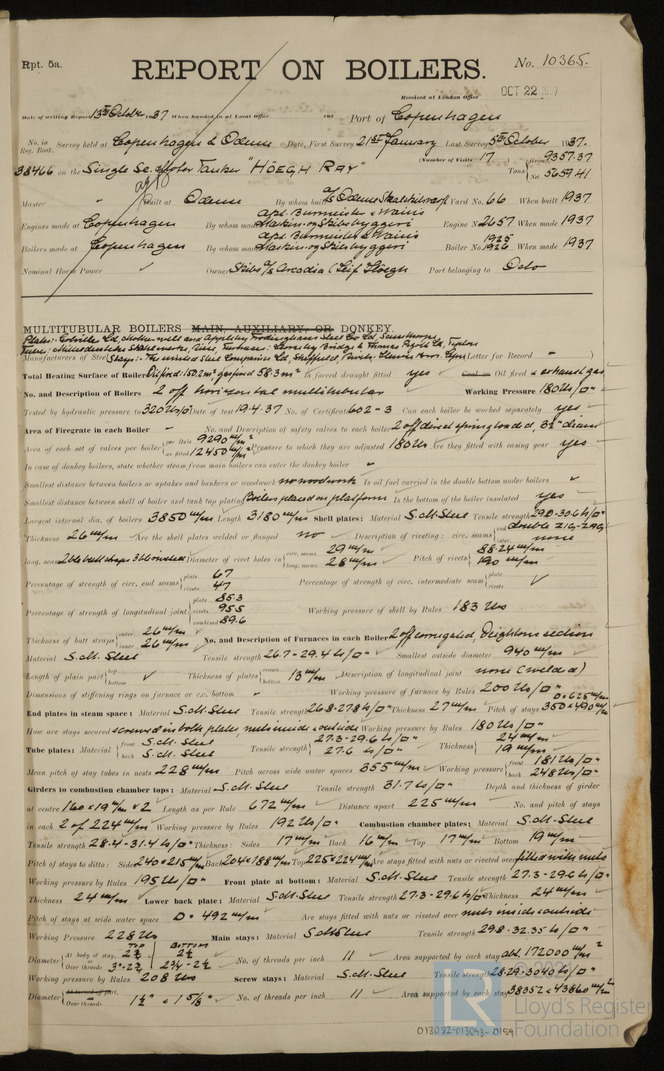 Rpt. 5a.
No. 10365.
REPORT ON BOILERS.
Received at London Office OCT 22
Date of writing Report 13th October 1937 When handed in at Local Office Port of Copenhagen
No. in Reg. Book. Survey held at Copenhagen & Odense Date, First Survey 21st January Last Survey 5th October 1937.
38466 on the Single Sc. Motor Tanker "HÖEGH RAY" (Number of Visits 17) Tons Gross 9357.37 Net 5659.41
Master Built at Odense By whom built A/S Odense Staalskibsværft Yard No. 66 When built 1937
Engines made at Copenhagen By whom made Akts. Burmeister & Wain's Maskin- og Skibsbyggeri Engine No. 2657 When made 1937
Boilers made at Copenhagen By whom made Akts. Burmeister & Wain's Maskin- og Skibsbyggeri Boiler No. 1925 1926 When made 1937
Nominal Horse Power Owners Skibs A/S Arcadia (Leif Höegh Port belonging to Oslo
MULTITUBULAR BOILERS MAIN, AUXILIARY, OR DONKEY.
Manufacturers of Steel (Letter for Record )
Total Heating Surface of Boilers Oil fired 150.2 m² gas fired 58.3 m² Is forced draught fitted yes Coal or Oil fired & exhaust gas
No. and Description of Boilers 2 off horizontal multitubular Working Pressure 180 lbs/□"
Tested by hydraulic pressure to 320 lbs/□" Date of test 19.4.37 No. of Certificate 602-3 Can each boiler be worked separately yes
Area of Firegrate in each Boiler No. and Description of safety valves to each boiler 2 off direct spring loaded,
Area of each set of valves per boiler per Rule 9290 m/m² as fitted 12450 m/m² Pressure to which they are adjusted 180 lbs Are they fitted with easing gear yes
In case of donkey boilers, state whether steam from main boilers can enter the donkey boiler
Smallest distance between boilers or uptakes and bunkers or woodwork no woodwork Is oil fuel carried in the double bottom under boilers
Smallest distance between shell of boiler and tank top plating Boilers placed on platform Is the bottom of the boiler insulated yes
Largest internal dia. of boilers 3850 m/m Length 3180 m/m Shell plates: Material S.M. Steel Tensile strength
Thickness 26 m/m Are the shell plates welded or flanged no Description of riveting: circ. seams end double zig-zag inter. none
long. seams Diameter of rivet holes in circ. seams 29 m/m long. seams 28 m/m Pitch of rivets 88.24 m/m 190 m/m
Percentage of strength of circ. end seams plate 67 rivets 47 Percentage of strength of circ. intermediate seam plate rivets
Percentage of strength of longitudinal joint plate 85.3 rivets 95.5 combined 89.6 Working pressure of shell by Rules 183 lbs
Thickness of butt straps outer 26 m/m inner 26 m/m No. and Description of Furnaces in each Boiler 2 off corrugated, Deightons section
Material S.M. Steel Tensile strength 26.7-29.4 ts/□" Smallest outside diameter 940 m/m
Length of plain part top bottom Thickness of plates crown bottom 13 m/m Description of longitudinal joint none (welded)
Dimensions of stiffening rings on furnace or c.c. bottom Working pressure of furnace by Rules 200 lbs/□"
End plates in steam space: Material S.M. Steel Tensile strength 26.8-27.8 ts/□" Thickness 27 m/m Pitch of stays 350 x 490 m/m
How are stays secured screwed in both plates nuts inside & outside Working pressure by Rules 180 lbs/□"
Tube plates: Material front S.M. Steel back S.M. Steel Tensile strength 27.3-29.6 ts/□" 27.6 ts/□" Thickness 24 m/m 19 m/m
Mean pitch of stay tubes in nests 228 m/m Pitch across wide water spaces 355 m/m Working pressure front 181 lbs/□" back 248 lbs/□"
Girders to combustion chamber tops: Material S.M. Steel Tensile strength 31.7 ts/□" Depth and thickness of girder
at centre 160 x 19 m/m x 2 Length as per Rule 672 m/m Distance apart 225 m/m No. and pitch of stays
in each 2 of 224 m/m Working pressure by Rules 192 lbs/□" Combustion chamber plates: Material S.M. Steel
Tensile strength 28.4-31.4 ts/□" Thickness: Sides 17 m/m Back 16 m/m Top 17 m/m Bottom 19 m/m
Pitch of stays to ditto: Sides 240 x 215 m/m Back 204 x 188 m/m Top 225 x 224 m/m Are stays fitted with nuts or riveted over fitted with nuts
Working pressure by Rules 195 lbs/□" Front plate at bottom: Material S.M. Steel Tensile strength 27.3-29.6 ts/□"
Thickness 24 m/m Lower back plate: Material S.M. Steel Tensile strength 27.3-29.6 ts/□" Thickness 24 m/m
Pitch of stays at wide water space 492 m/m Are stays fitted with nuts or riveted over nuts inside & outside
Working Pressure 228 lbs Main stays: Material S.M. Steel Tensile strength 29.8-32.35 ts/□"
Diameter At body of stay, or Over threads TOP BOTTOM No. of threads per inch 11 Area supported by each stay abt. 172000 m/m²
Working pressure by Rules 208 lbs Screw stays: Material S.M. Steel Tensile strength
Diameter Over threads 1½" & 1⅝" No. of threads per inch 11 Area supported by each stay 38352 & 43860 m/m²
Lloyd's Register Foundation
013082-013093-0159